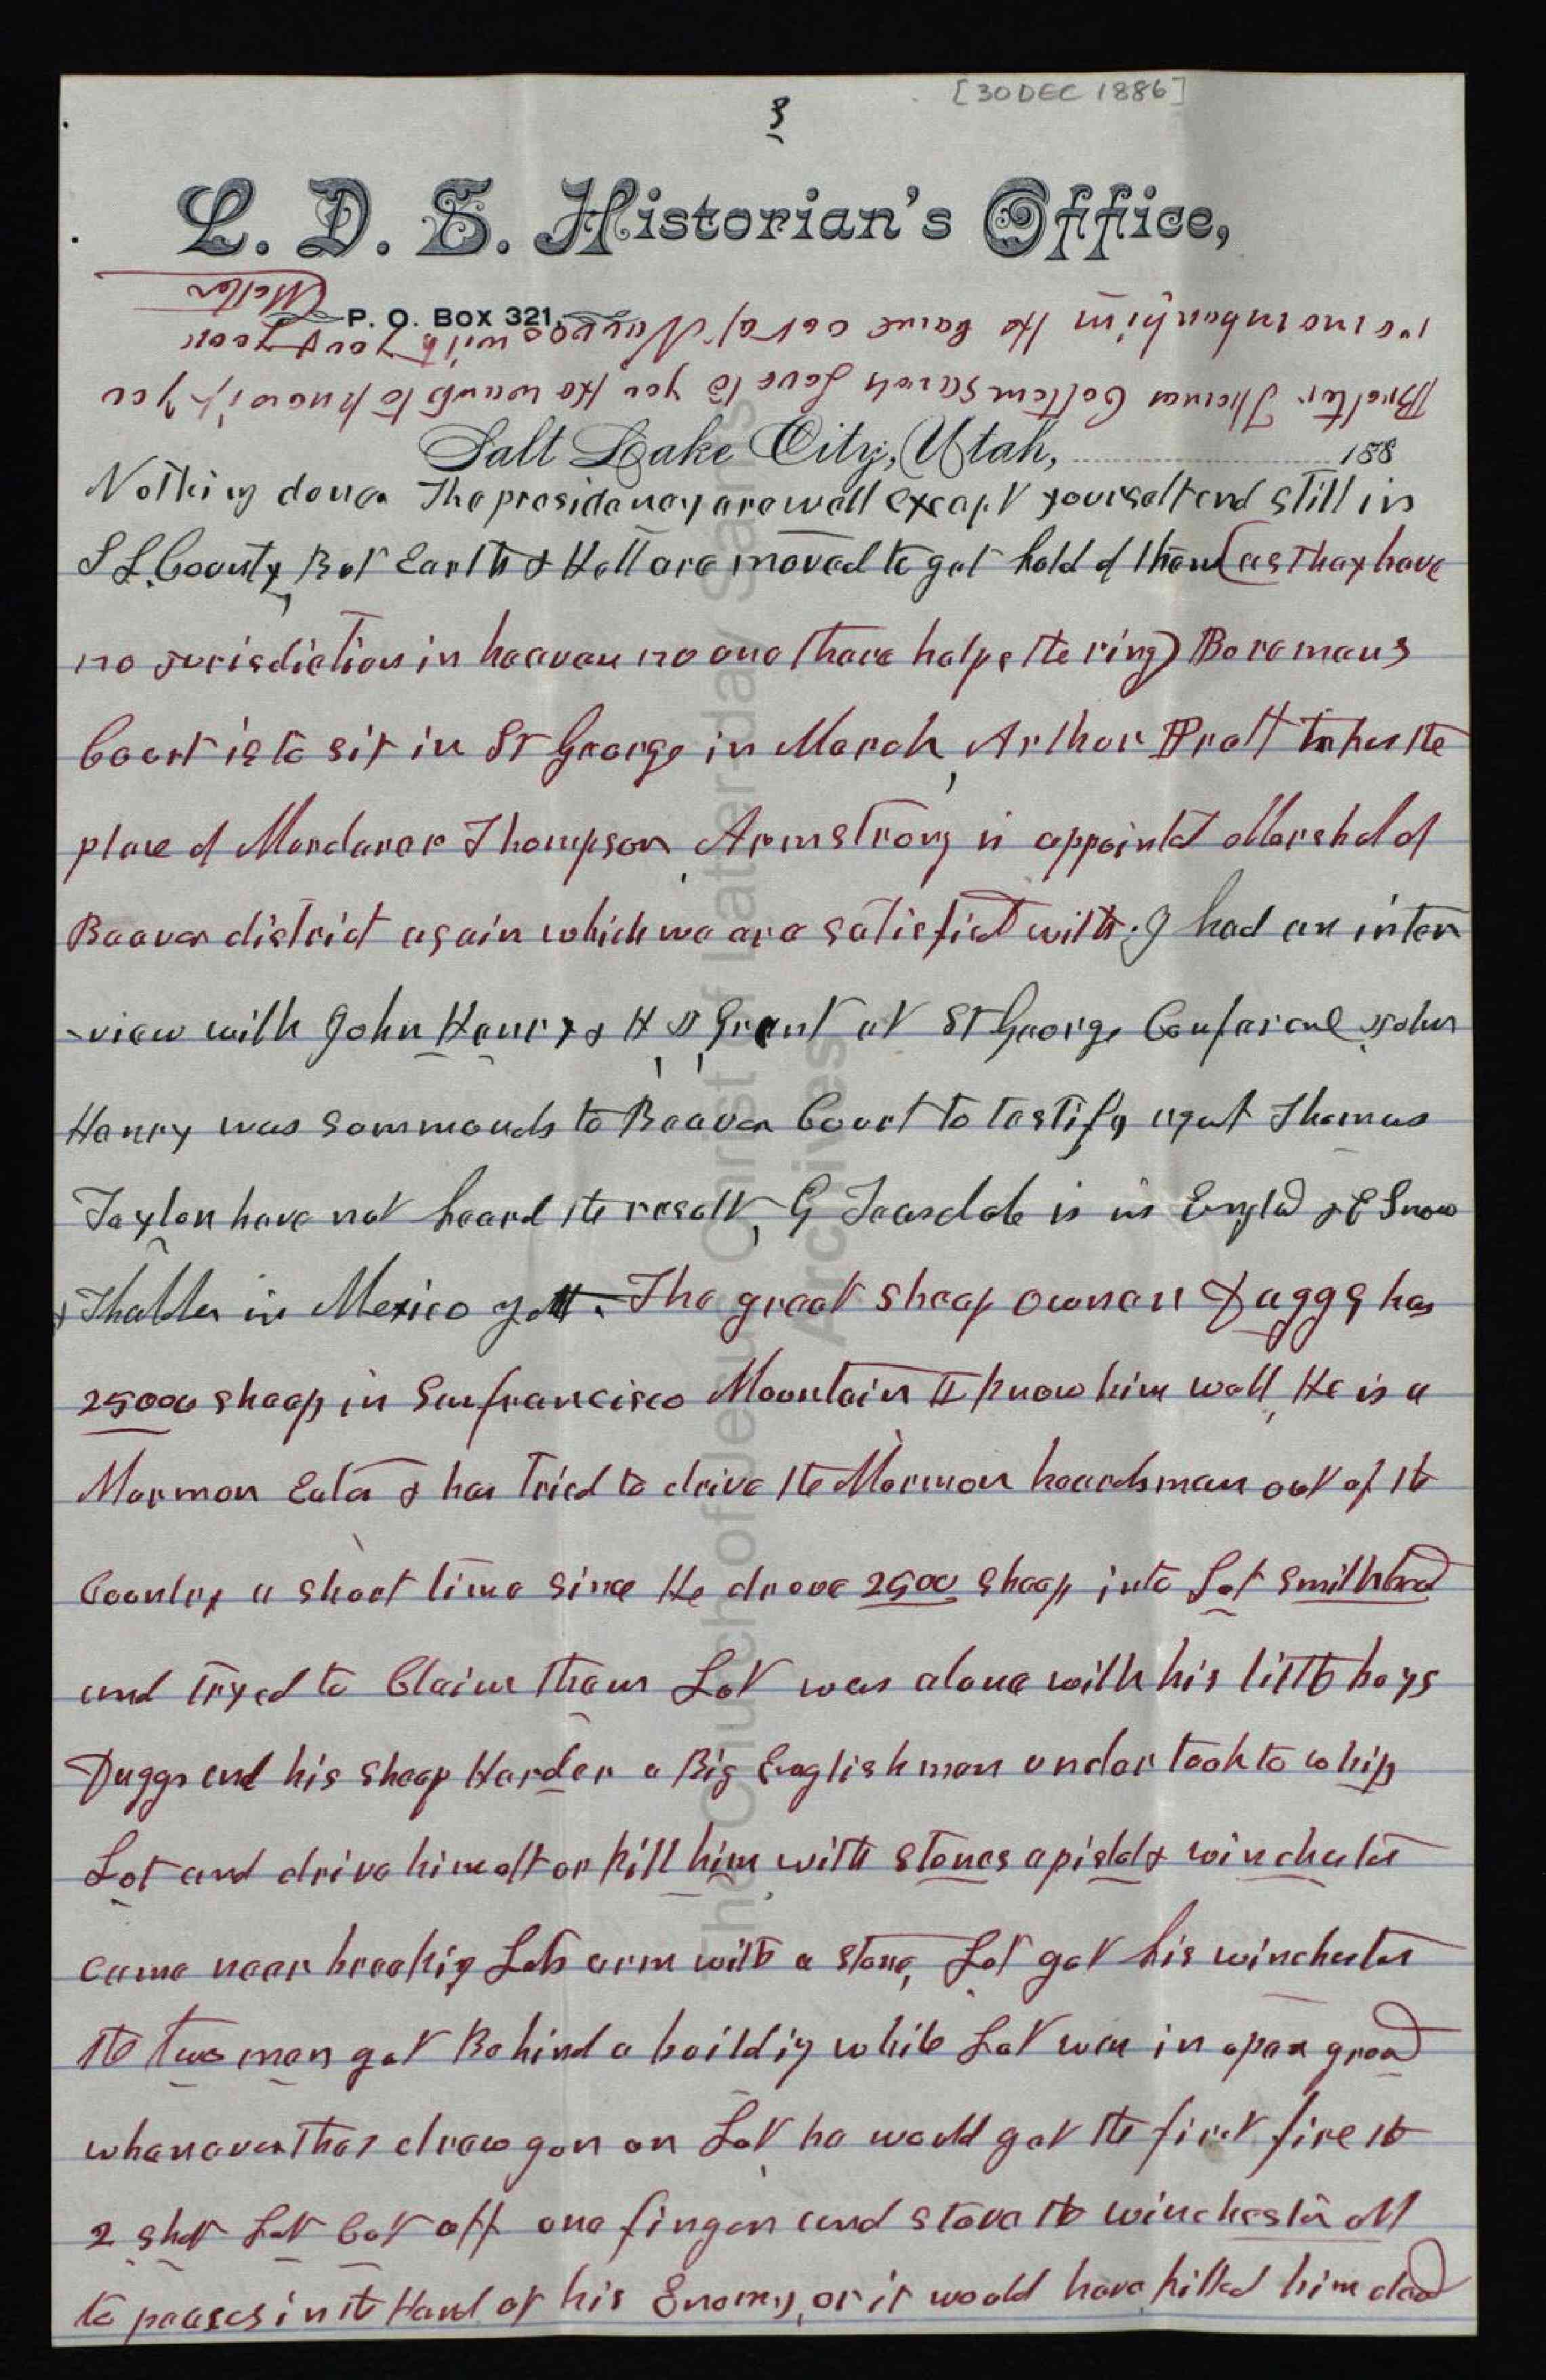 [30 DEC 1886]
3
L. D. S. Historian's Office,
P. O. BOX 321.
Brother Thomas Cottam sends Love to you He wants to know if you
remember him He came over Nauvoo with
Salt Lake City, Utah, 188
Nothing done. The presidency are well except yourself and still in
S L. County, But Earth & Hell are moved to get hold of them (as they have
no jurisdiction in heaven no one there helps the ring) Boremans
Court is to sit in St George in March, Arthur Pratt takes the
place of Murderer Thompson, Armstrong is appointd Marshal of
Beaver district again which we are satisfied with. I had an inter
-view with John Henry & H J Grant at St George Conference John
Henry was sommonds to Beaver Court to testify agst Thomas
Taylor have not heard the result, G Teasdale is in Engld & E Snow
& Thatcher in Mexico yett. The great sheep owner Daggs has
25000 sheep in Sanfrancisco Mountain I know him well, He is a
Mormon Eater & has tried to drive the Mormon heardsman out of the
Country a short time since He drove 2500 sheep into Lot Smith herd
and tryed to Claim them Lot was alone with his little boys
Daggs and his sheep Harder a Big Englishman undertook to whip
Lot and drive him off or kill him with stones a pistol & winchester
came near breaking Lots arm with a stone, Lot got his winchester
the two men got Behind a building while Lot was in open ground
whenever they drew gun on Lot, he would get the first fire the
2 shot Lot Cut off one finger and stove the winchester all
to peaces in the Hand of his Enemy, or it would have killed him dead
The Church of Jesus Christ of Latter-day Saints
Archives